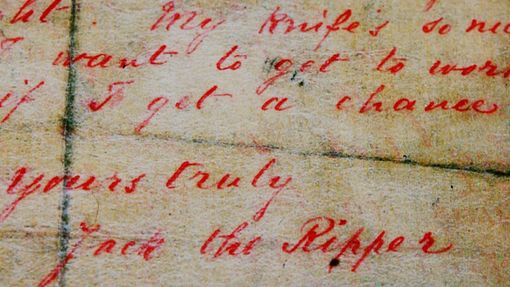 ht. My Knife's so
I want to get to wor
if I get a chance
Yours truly
Jack the Ripper